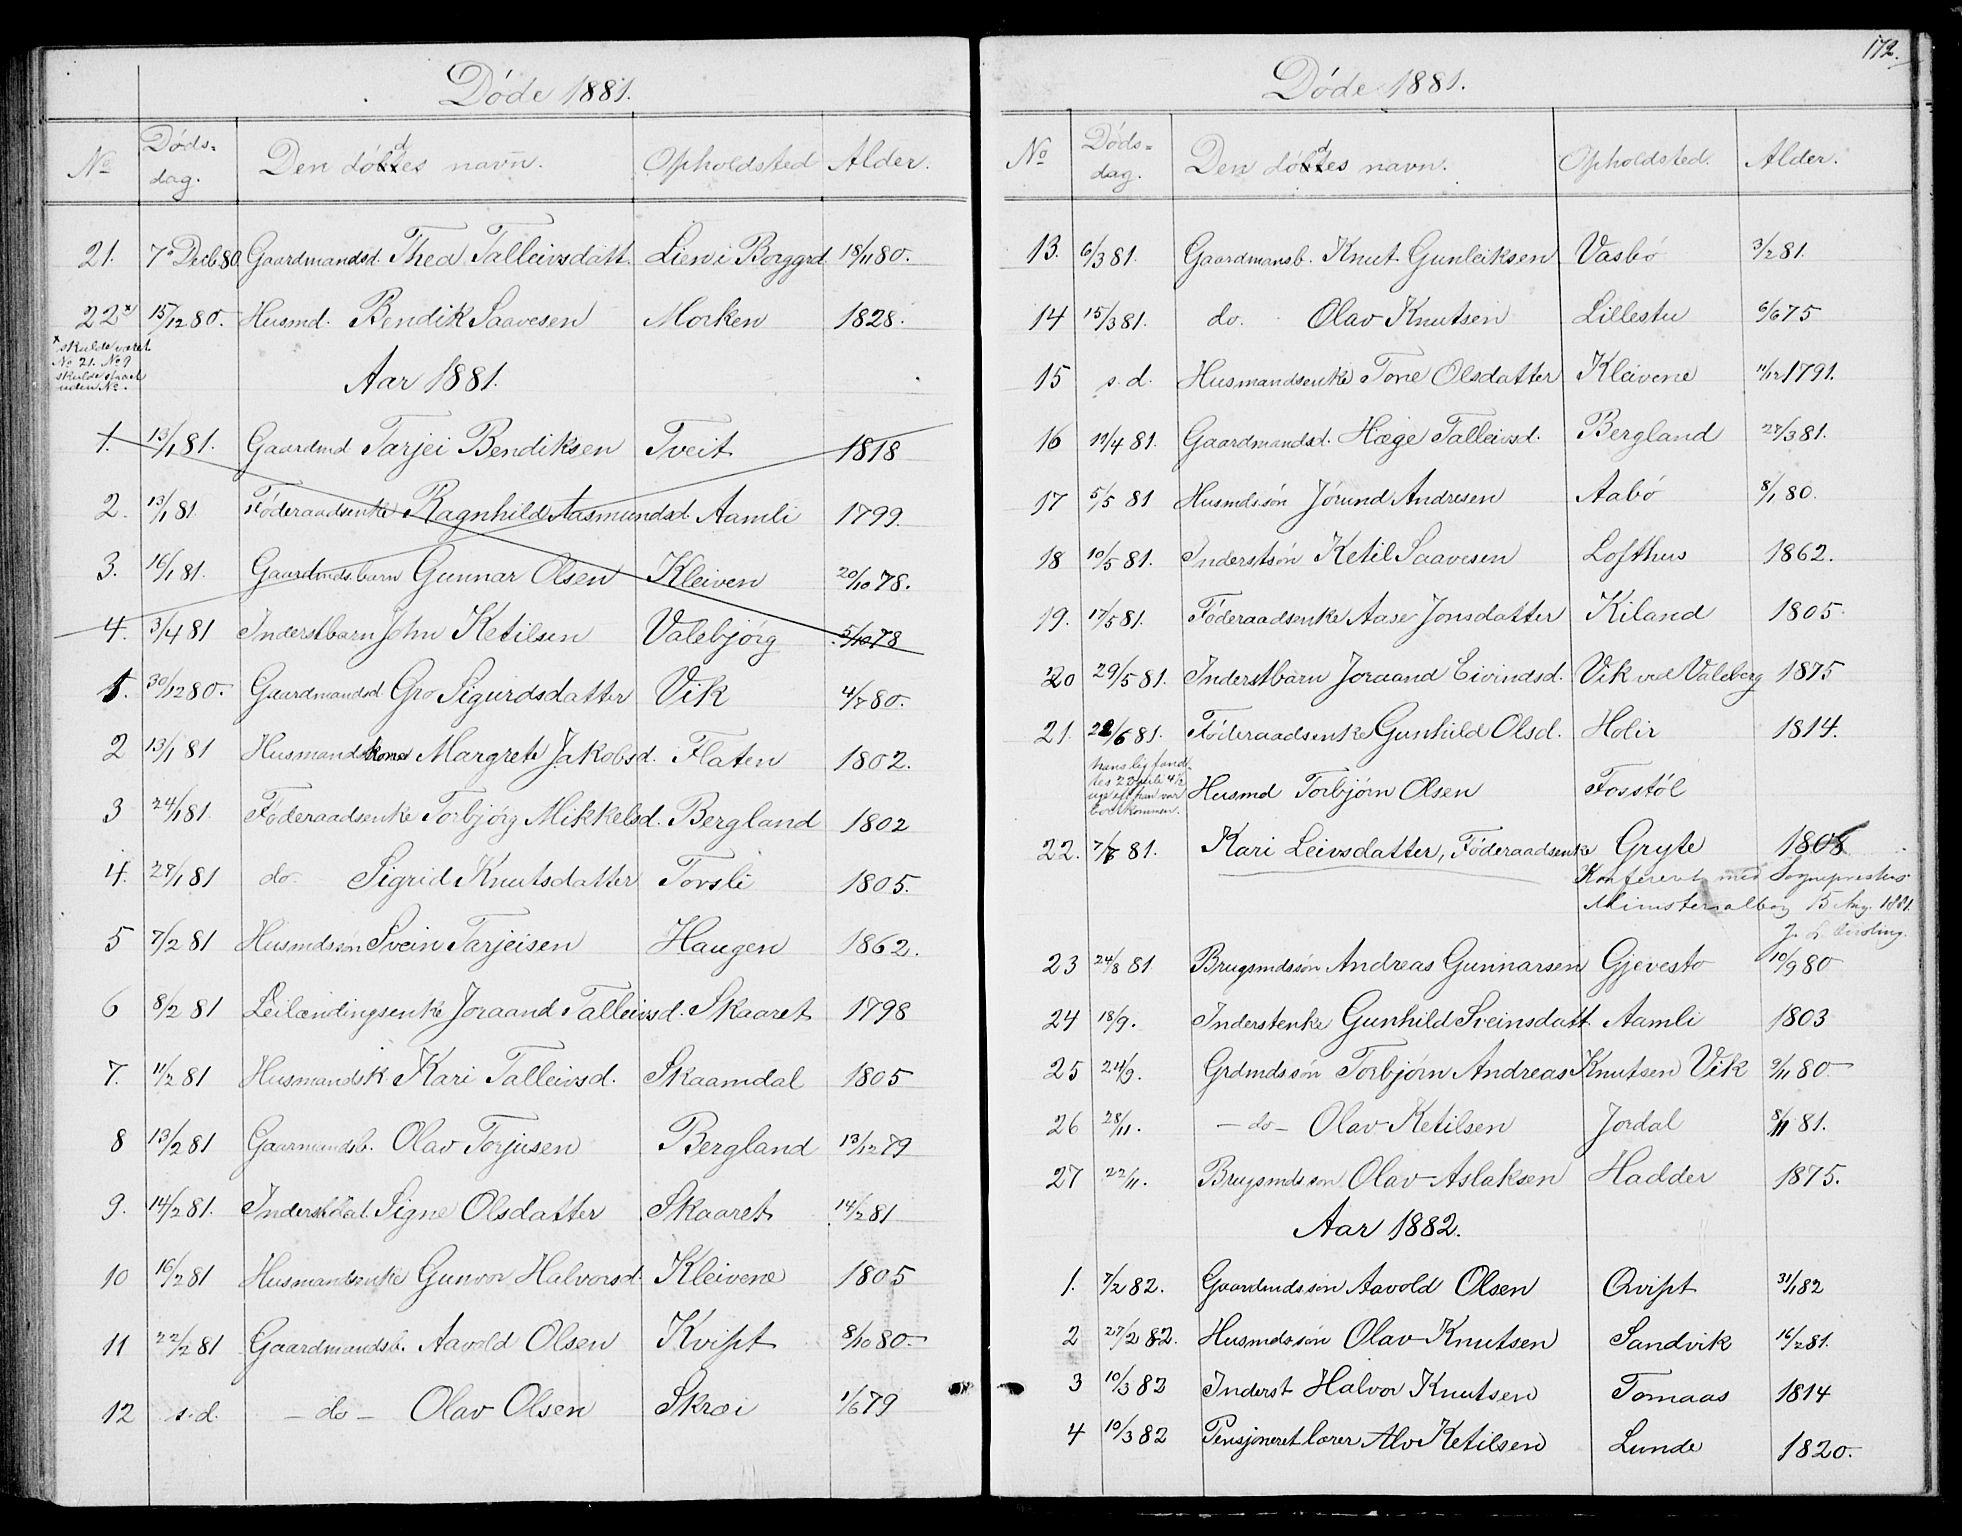 Døde 1881.
No Dødsdag. Den døttes navn. d Opholdsted Alder.
21. 7 Decb 80. Gaardmandsd. Thea Talleivsdatt. Lien i Borggrd 18/11 80.
22x 15/12 80. Husmd. Bendik Saavesen Morken 1828.
x skulde været
No 21. No 9
skulde staaet
uden No.
Aar 1881.
1. 13/1 81. Gaardmd Tarjei Bendiksen Tveit 1818
2. 13/1 81. Føderaadsenke Ragnhild Aasmundsd. Aamli 1799.
3. 16/1 81. Gaardmds.barn Gunnar Olsen Kleiven 20/10 78.
4. 3/4 81 Inderstbarn John Ketilsen Valebjørg 5/10 78
1. 30/12 80. Gaardmandsd Gro Sigurdsdatter Vik 4/7 80.
2 13/1 81 Husmandskone Margrete Jakobsd. Flaten 1802.
3 24/1 81. Føderaadsenke Torbjørg Mikkelsd. Bergland 1802
4. 27/1 81 do. Sigrid Knutsdatter Tovsli 1805.
5 7/2 81 Husmdssøn Svein Tarjeisen Haugen 1862.
6 8/2 81 Leilændingsenke Joraand Talleivsd. Skaaret 1798
7. 11/2 81 Husmandsk. Kari Talleivsd. Skaamdal 1805
8 13/2 81 Gaarmandsb. Olav Torjusen Bergland 13/12 79
9. 14/2 81. Inderstdat. Signe Olsdatter Skaaret 14/2 81
10 16/2 81 Husmandsenke Gunvor Halvorsd. Kleivene 1805
11 22/2 81 Gaardmandsb. Aavold Olsen Kvipt 8/10 80.
12 s.d. - do - Olav Olsen Skrei 1/6 79
172.
Døde 1881.
No Dødsdag. Den døttes navn. d Opholdsted. Alder.
13. 6/3 81. Gaardmansb. Knut Gunleiksen Vasbø 3/2 81.
14 15/3 81. do. Olav Knutsen Lillestu 6/6 75
15 s.d. Husmandsenke Tone Olsdatter Kleivene 11/12 1791.
16 19/4 81. Gaardmandsd. Hæge Talleivsd. Bergland 27/3 81.
17 5/5 81 Husmdssøn Jørund Andresen Aabø 8/1 80.
18 10/5 81. Inderstsøn Ketil Saavesen Lofthus 1862.
19. 17/5 81. Føderaadsenke Aase Jonsdatter Kiland 1805
20 29/5 81. Inderstbarn Joraand Eivindsd. Vik ved Valeberg 1875
21. 22/6 81. Føderaadsenke Gunhild Olsd. Holir 1814.
hans lig fandtes
bortkommen.
Husmd Torbjørn Olsen Fosstøl
22. 7/8 81. Kari Leivsdatter, Føderaadsenke Gryte 1808
Konfereret med Sogneprestens
Ministerialbog 15 Aug. 1881.
23 24/8 81 Brugsmdssøn Andreas Gunnarsen Gjevesto 10/9 80
24 18/9. Inderstenke Gunhild Sveinsdatt. Aamli 1803
25 24/9. Grdmdssøn Torbjørn Andreas Knutsen Vik 9/11 80
26 28/11. - do - Olav Ketilsen Jordal 8/11 81.
27 22/11. Brugsmdssøn Olav Aslaksen Hadder 1875.
Aar 1882.
1. 7/2 82. Gaardmdssøn Aavold Olsen Qvipt 31/1 82
2 27/2 82. Husmdssøn Olav Knutsen Sandvik 16/2 81.
3 10/3 82 Inderst Halvor Knutsen Tomaas 1814
4 10/3 82 Pensjoneret lærer Alv Ketilsen Lunde 1820.